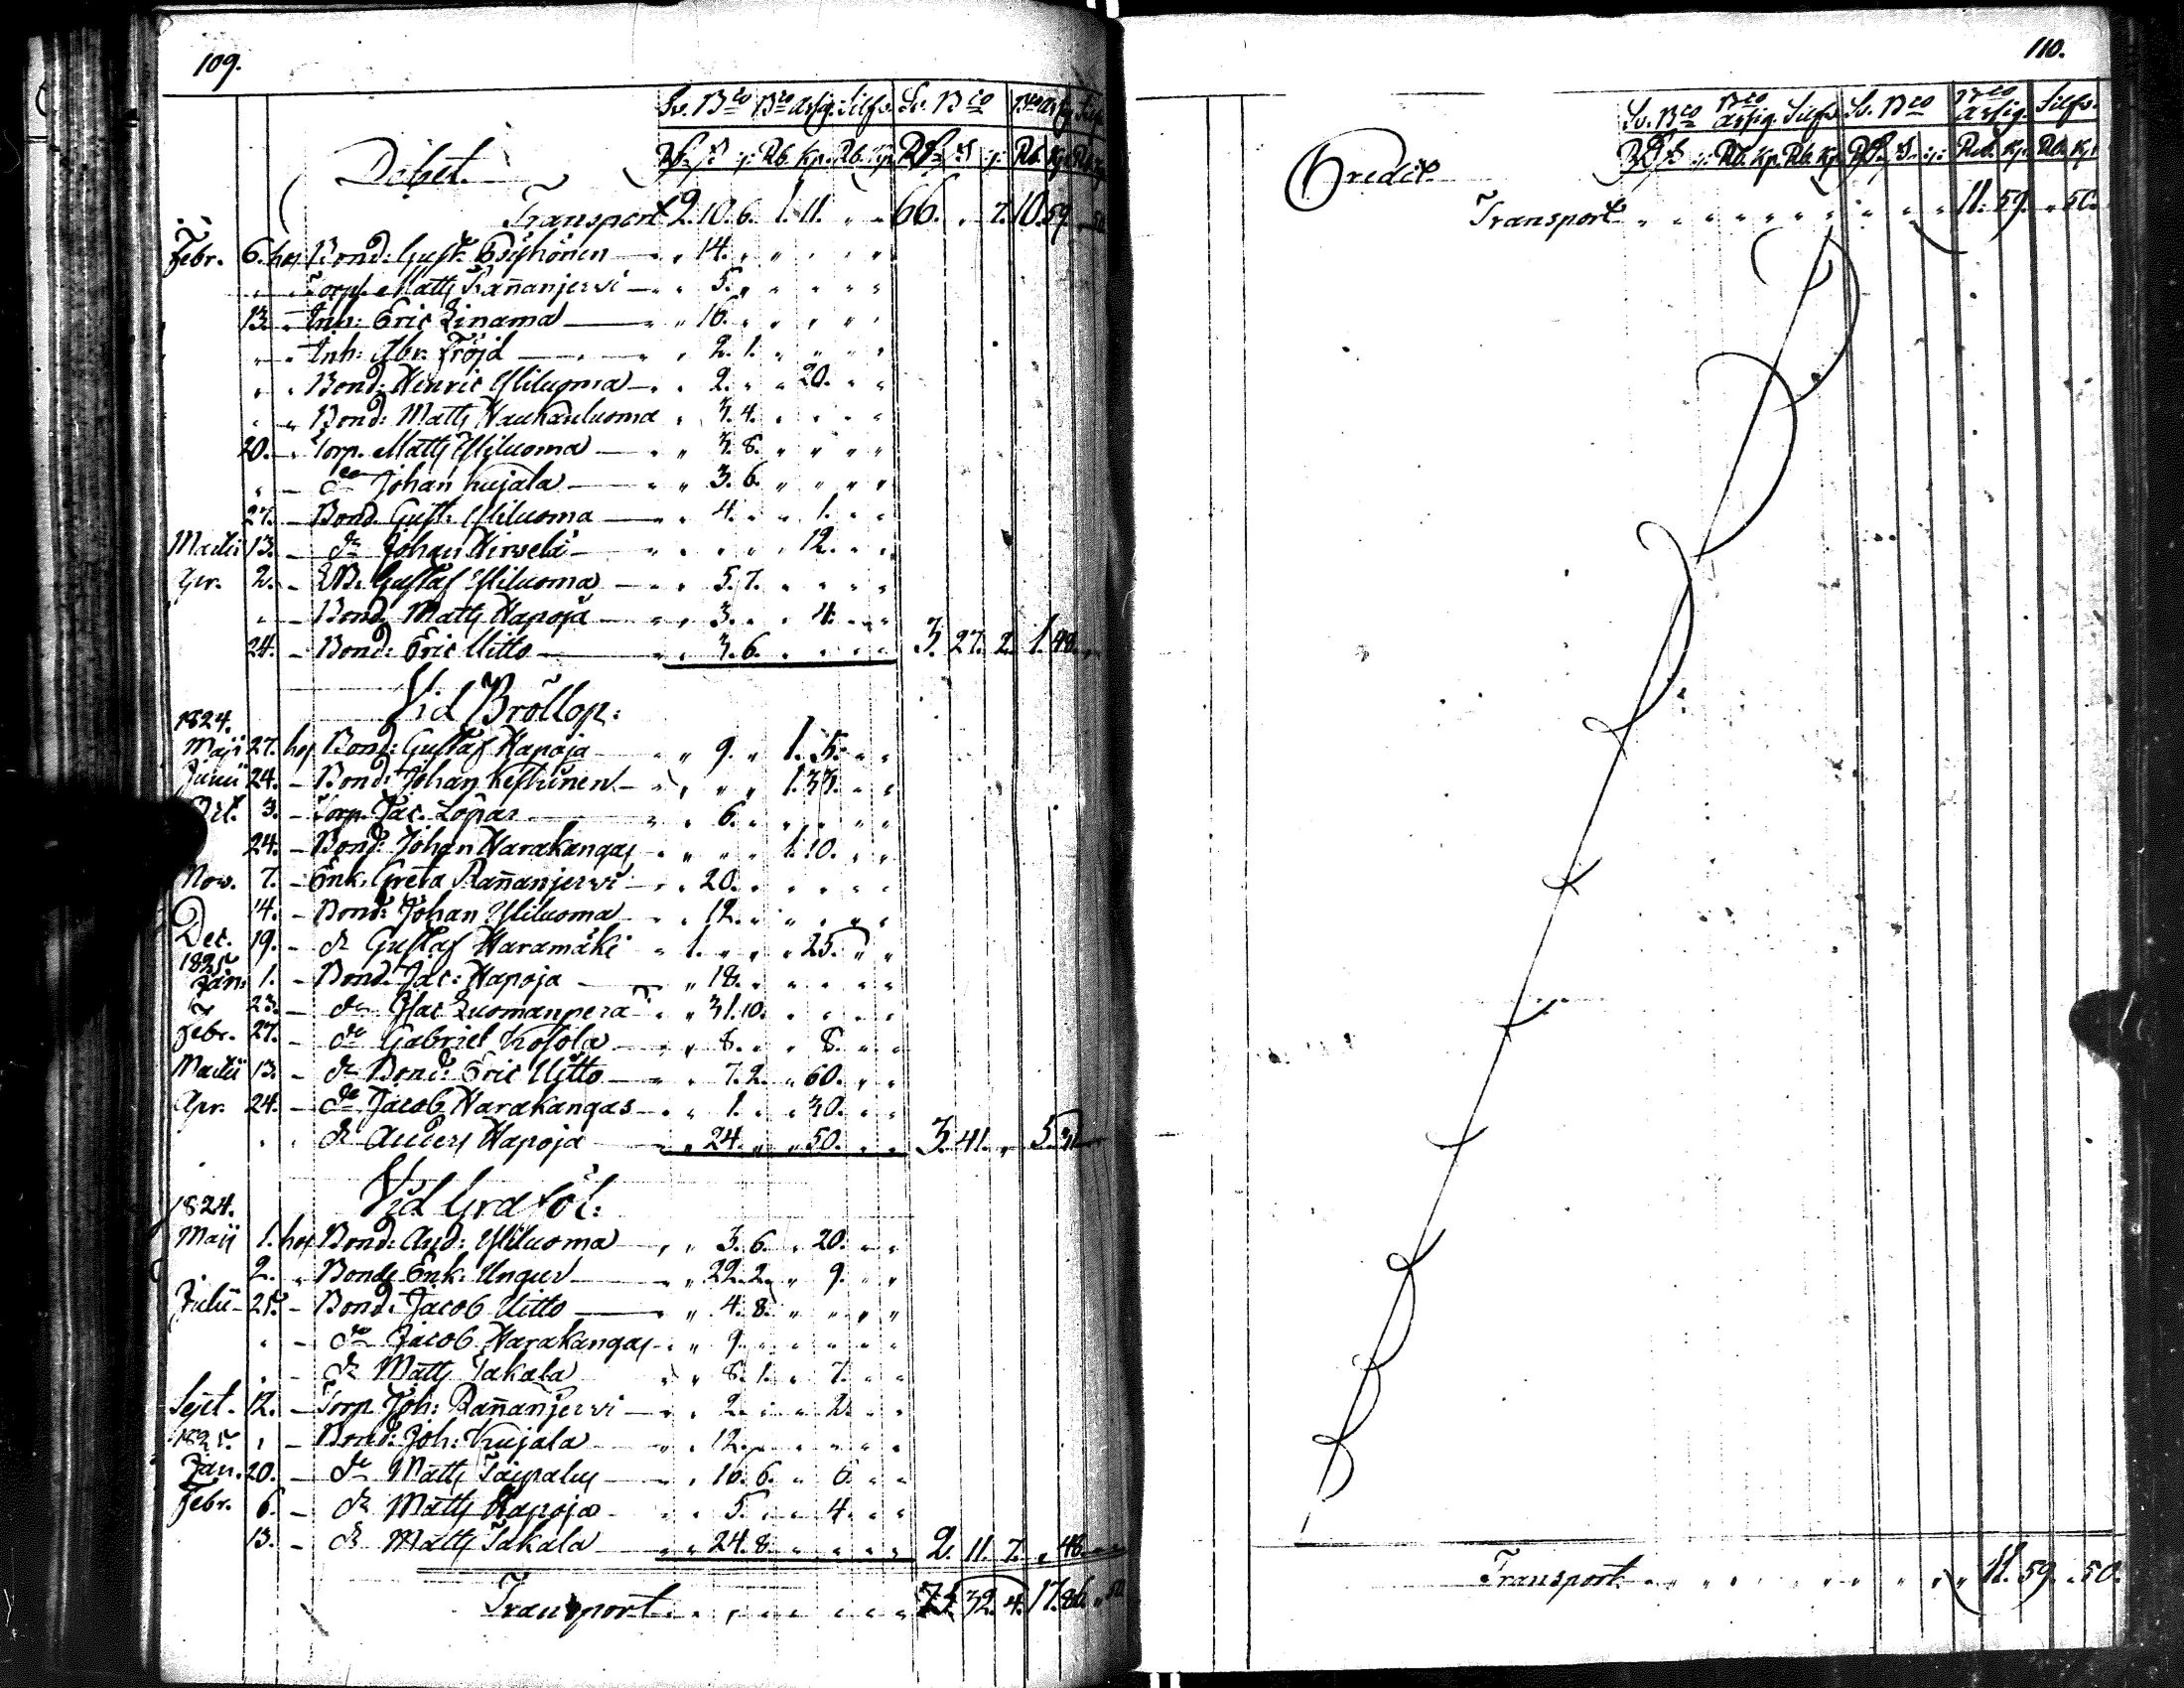 109.
Sv. Bco Bco Assig. Silfv. Sv. Bco Bco Assig. Silf.
Debet. Rd. s. Rb. Kp. Rb. Kp. Rd. s. Rb. Kp. Rb.
Transport 2. 10. 6. 1. 11. " " 66. " 7. 10. 59. " 50
Febr. 6. hos Bond: Gust. " 14. " " " " "
" " Torp. Matts Rañanjervi " 5. " " " " "
13. " Inh: Eric Linama " 16. " " " " "
" " Inh: Gbr: Fröjd " 2. 1. " " " "
" " Bond: Henric Yliluoma " 2. " " 20. " "
" " Bond: Matts Haukauluoma " 3. 4. " " " "
20. " Torp. Matts Yliluoma " 3. 8. " " " "
" – do Johan Kujala " 3. 6. " " " "
27. – Bond. Gust. Yliluoma " 4. " " 1. " "
Martii 13. – do Johan Hirvelä " " " " 12. " "
Apr. 2. – Gustaf Yliluoma " 5. 7. " " " "
" – Bond. Matts Hapoja " 3. " " 4. " "
24. – Bond: Eric Uitto " 3. 6. " " " " 3. 27. 2. 1. 48. "
Vid Bröllop:
1824.
Maji 27. hos Bond: Gustaf Hapoja " " 9. " 1. 5. " "
Junii 24. – Bond: Johan Keltunen " " " " 1. 33. " "
Oct. 3. – Torp. Jac. Lopar " 6. " " " " "
24. – Bond: Johan Harakangas " " " " 1. 10. " "
Nov. 7. – Enk. Greta Rañanjervi " 20. " " " " "
14. – Bond: Johan Yliluoma " 12. " " " " "
Dec. 19. – do Gustaf Haramäki " 1. " " " 25. " "
1825
Jan. 1. – Bond. Jac: Hapoja " 18. " " " " "
23. – do Isac Luomanperä " 31. 10. " " " "
Febr. 27. – do Gabriel Kosola " 8. " " 8. " "
Martii 13. – do Bond: Eric Uitto " 7. 2. " 60. " "
Apr. 24. – do Jacob Harakangas " 1. " " 30. " "
" " do Anders Hapoja " 24. " " 50. " " 3. 41. " 5. 31
Vid Grafböl:
1824.
Maji 1. hos Bond: And: Yliluoma " " 3. 6. " 20. " "
2. " Bonde Enk: Ungur " 22. 2. " 9. " "
Julii 25. – Bond: Jacob Uitto " 4. 8. " " " "
" – do Jacob Harakangas " 9. " " " " "
" – do Matts Takala " 8. 1. " 7. " "
Sept. 12. – Torp. Joh: Rañanjervi " 2. " " 2. " "
1825. " – Bond: Joh: Kujala " 12. " " " " "
Jan. 20. – do Matts Taipalus " 16. 6. " 6. " "
Febr. 6. – do Matts Hapoja " 5. " " 4. " "
13. – do Matts Takala " 24. 8. " " " " 2. 11. 7. " 48. "
Transport " " " " " " 75. 32. 4. 17. 86. " 50
110.
Sv. Bco Bco Assig. Silfv. Sv. Bco Bco Assig. Silfv.
Credit Rd. s. Rb. Kp. Rb. Kp. Rd. s. Rub. Kp. Rb. Kp.
Transport " " " " " " " " " " 11. 59. " 50.
Transport " " " " " " " " " " 11. 59. " 50.